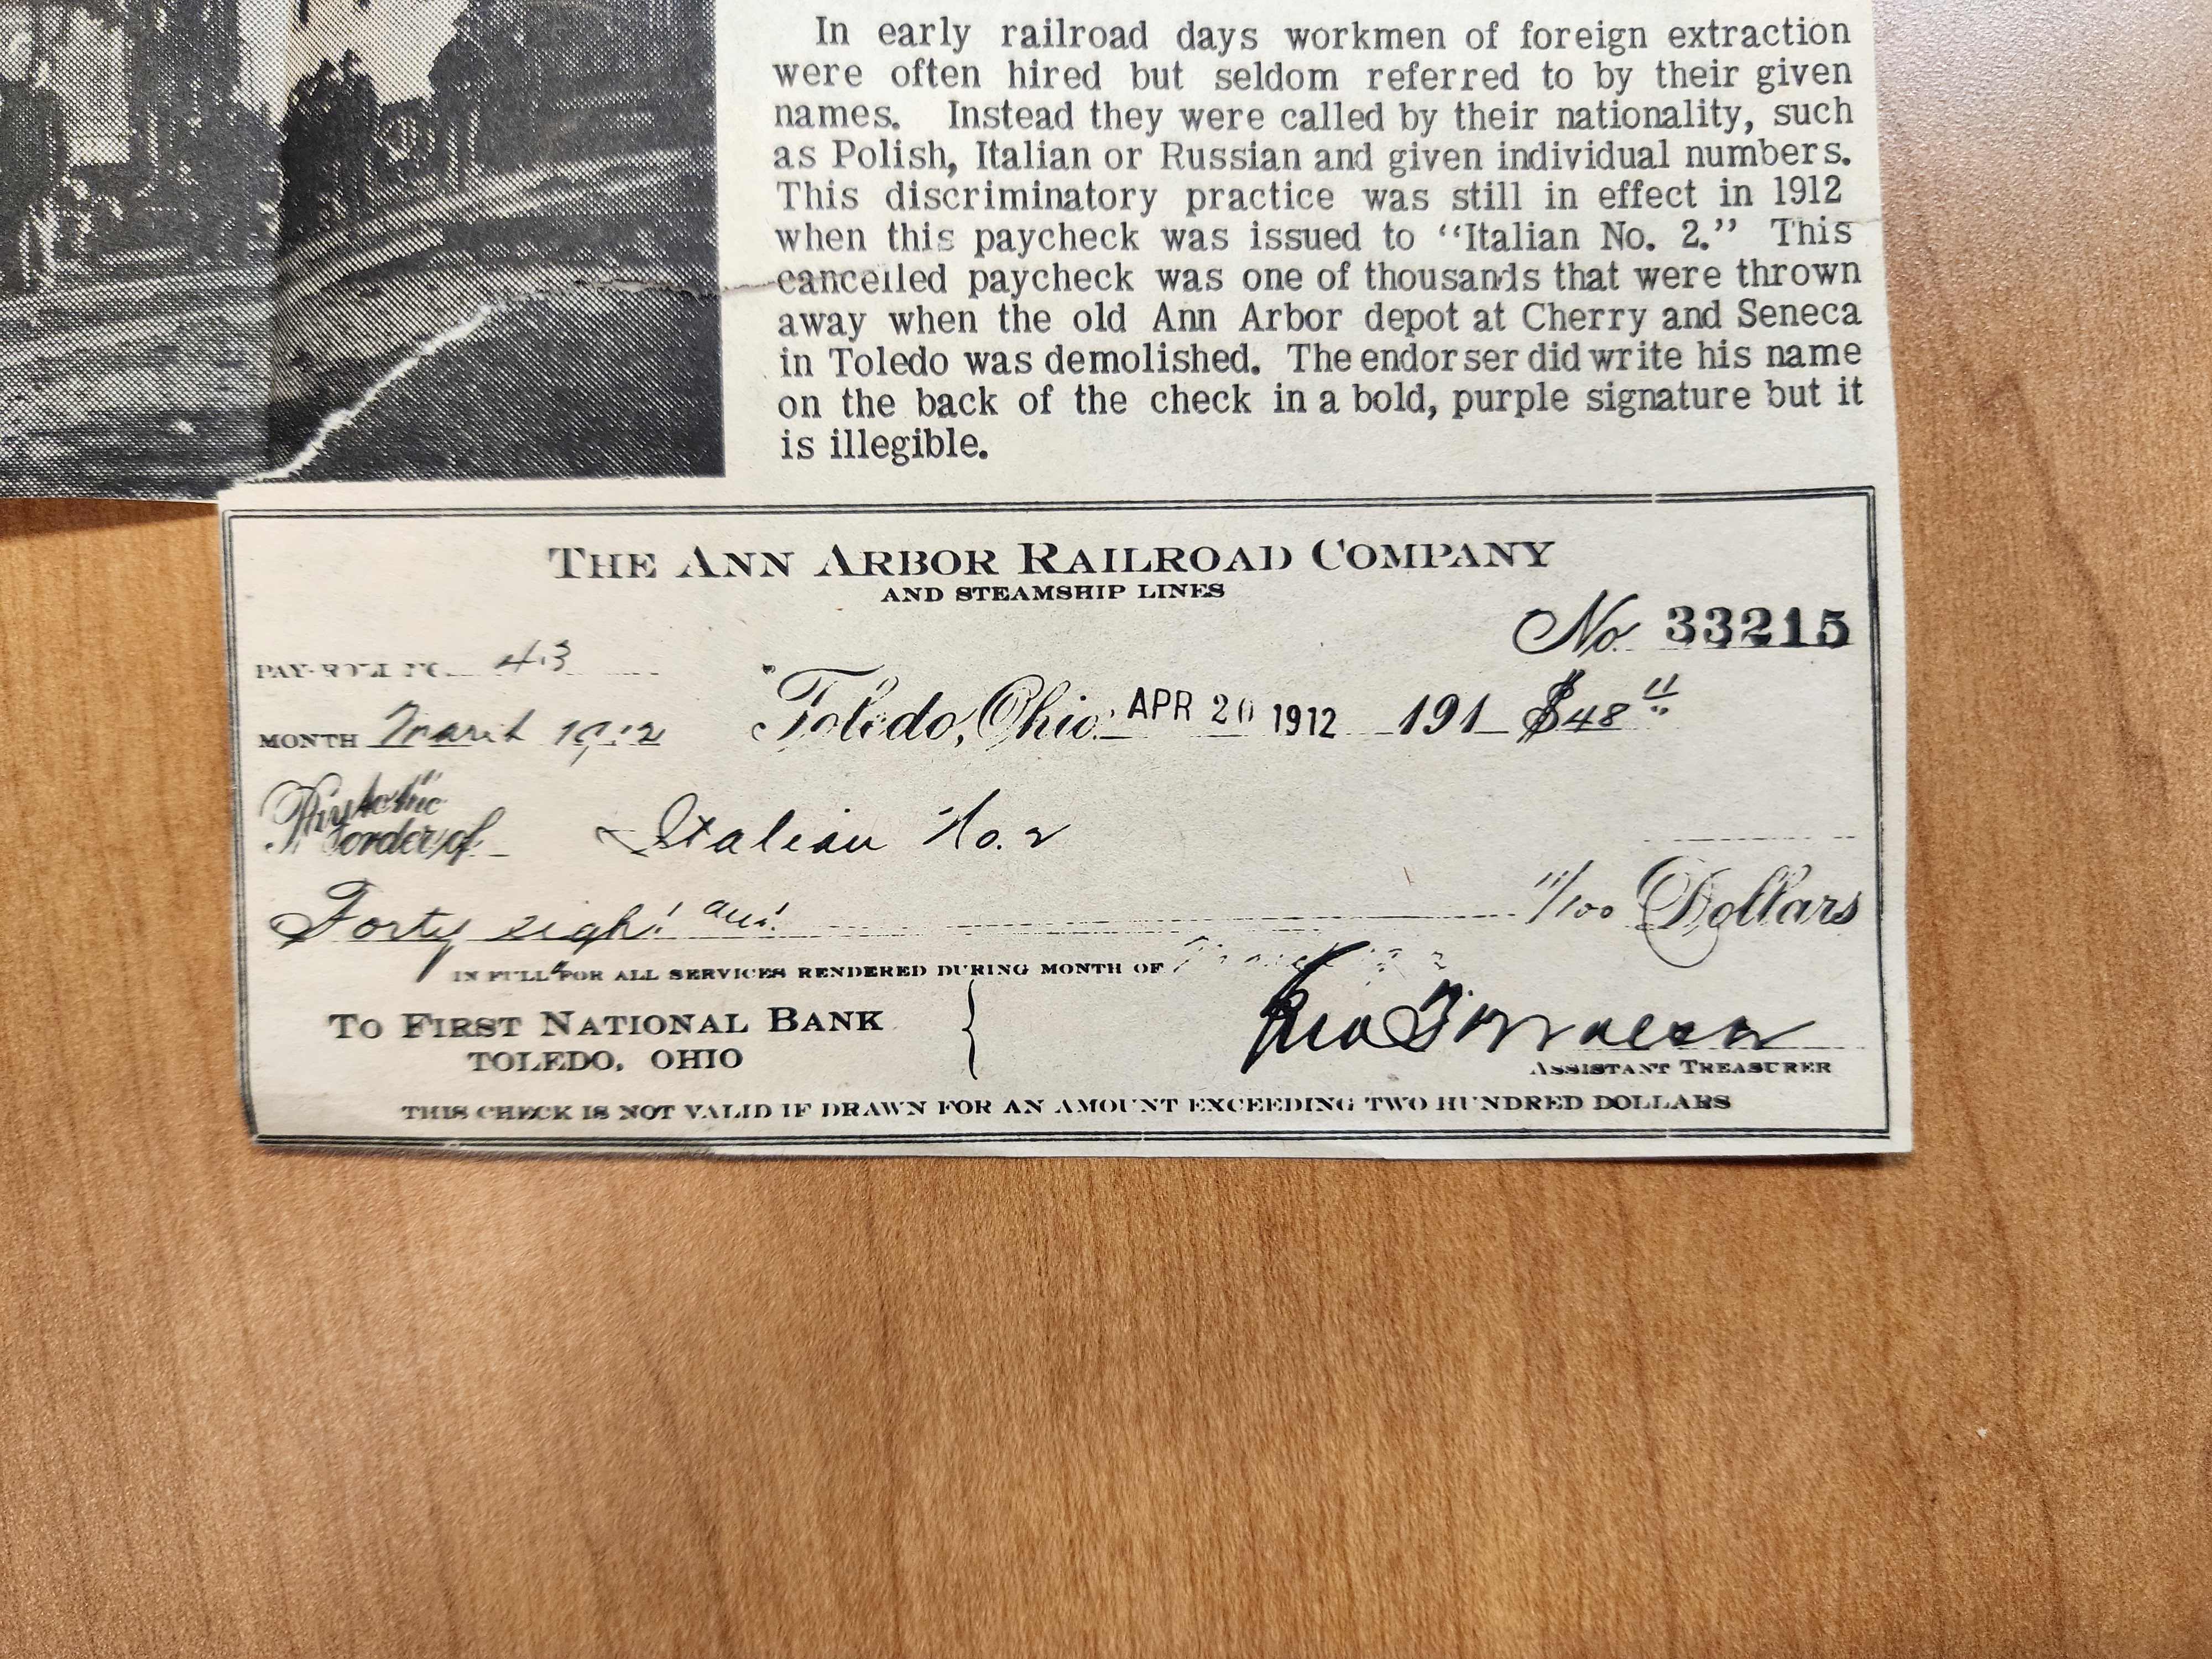 In early railroad days workmen of foreign extraction
were often hired but seldom referred to by their given
names. Instead they were called by their nationality, such
as Polish, Italian or Russian and given individual numbers.
This discriminatory practice was still in effect in 1912
when this paycheck was issued to “Italian No. 2.” This
cancelled paycheck was one of thousands that were thrown
away when the old Ann Arbor depot at Cherry and Seneca
in Toledo was demolished. The endorser did write his name
on the back of the check in a bold, purple signature but it
is illegible.
THE ANN ARBOR RAILROAD COMPANY
AND STEAMSHIP LINES
No. 33215
PAY-ROLL NO. 43
MONTH March 1912 Toledo, Ohio. APR 20 1912 191 $48 11
Pay to the
order of Italian No. 2
Forty eight and 11/100 Dollars
IN FULL FOR ALL SERVICES RENDERED DURING MONTH OF
TO FIRST NATIONAL BANK
TOLEDO, OHIO
ASSISTANT TREASURER
THIS CHECK IS NOT VALID IF DRAWN FOR AN AMOUNT EXCEEDING TWO HUNDRED DOLLARS